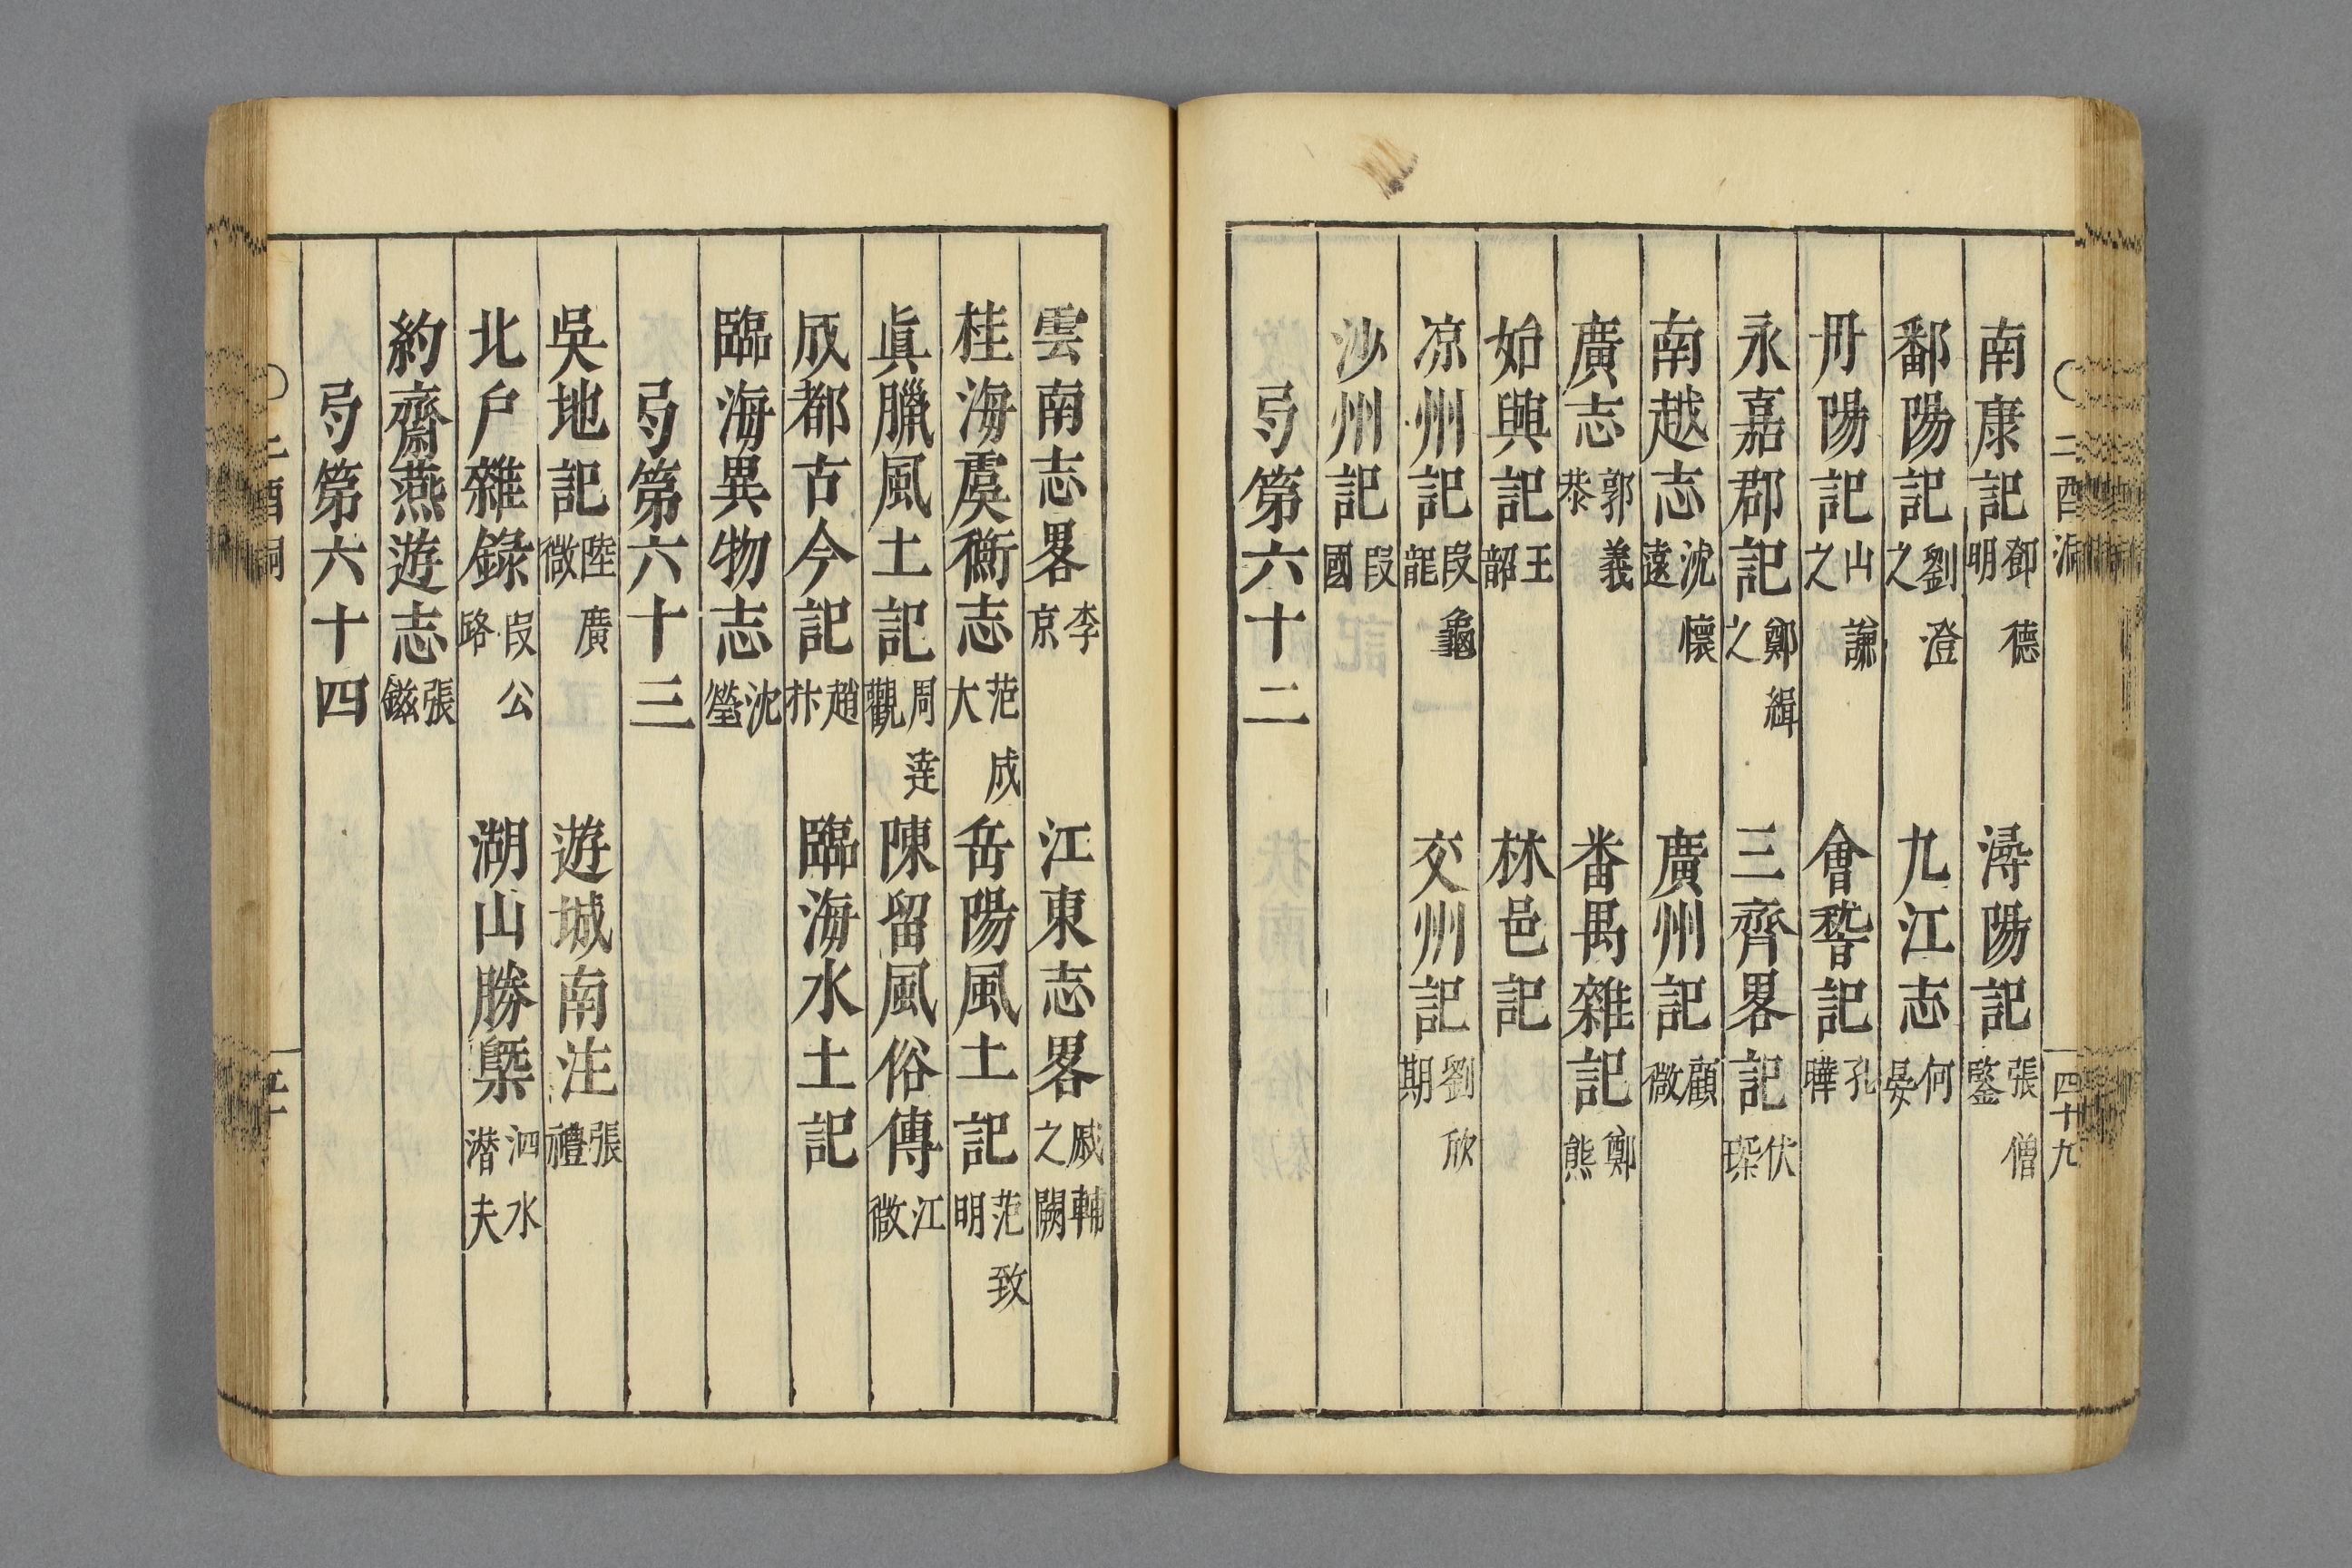 南康記鄧德明　潯陽記張僧鑒
鄱陽記劉澄之　九江志何晏
丹陽記山謙之　會稽記孔曄
永嘉郡記鄭緝之　三齊畧記伏琛
南越志沈懷遠　廣州記顧微
廣志郭義恭　番禺雜記鄭熊
始興記王韶　林邑記
凉州記段龜龍　交州記劉欣期
沙州記段國
弓第六十二
四十九
雲南志畧李京　江東志畧戚輔之闕
桂海虞衡志范成大　岳陽風土記范致明
眞臘風土記周達觀　陳留風俗傳江微
成都古今記趙抃　臨海水土記
臨海異物志沈瑩
弓第六十三
吳地記陸廣微　遊城南注張禮
北戶雜錄段公路　湖山勝槩泗水潜夫
約齋燕遊志張鎡
弓第六十四